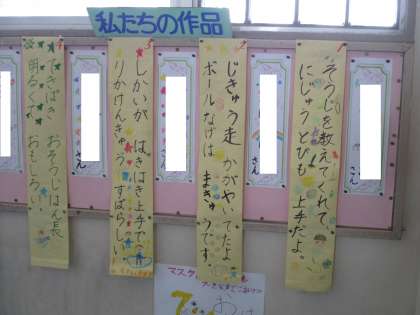 私たちの作品
そうじを教えてくれて
にじゅうとびも 上手だよ。
じきゅう走 かがやいてたよ
ボールなげは まきゅうです。
さん
しかいが はきはき上手で
りかけんきゅう すばらしい
てきぱき おそうじはん長
明るくて おもしろい
マスタ